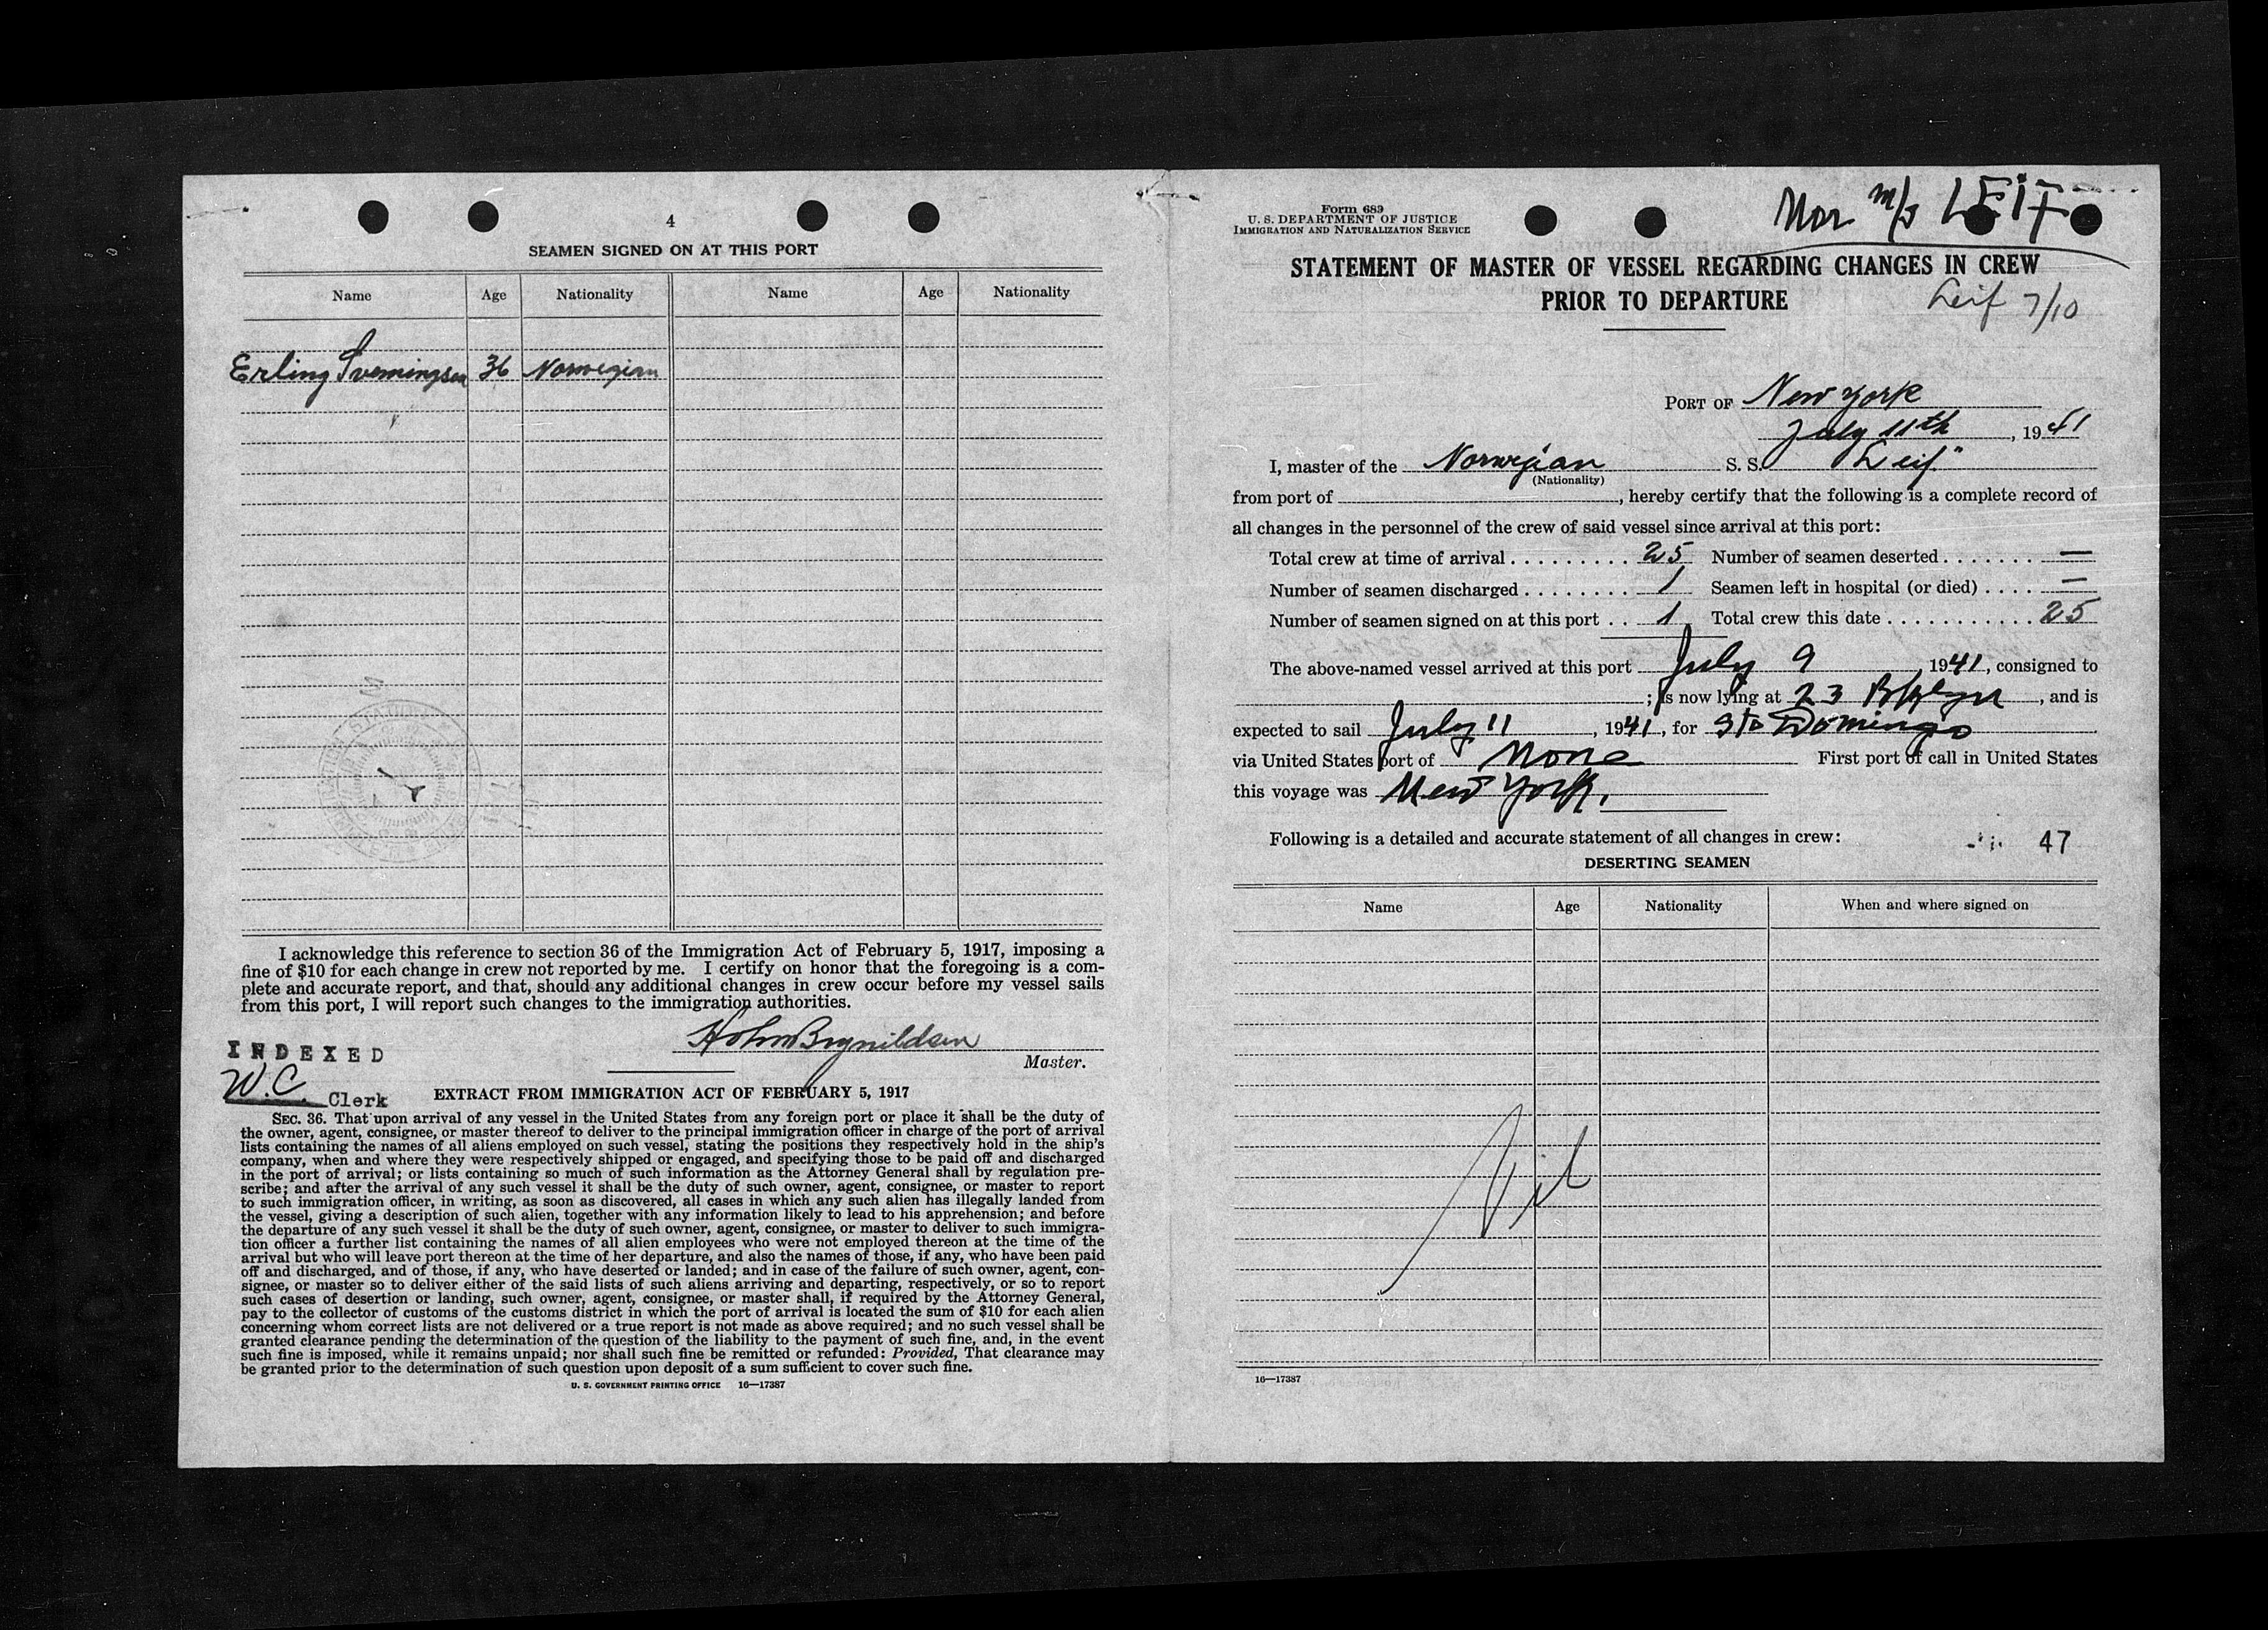 4
SEAMEN SIGNED ON AT THIS PORT
Name Age Nationality Name Age Nationality
Erling 36 Norwegian
I acknowledge this reference to section 36 of the Immigration Act of February 5, 1917, imposing a
fine of $10 for each change in crew not reported by me. I certify on honor that the foregoing is a com-
plete and accurate report, and that, should any additional changes in crew occur before my vessel sails
from this port, I will report such changes to the immigration authorities.
Holm Brynildsen
Master.
INDEXED
W.C. Clerk
EXTRACT FROM IMMIGRATION ACT OF FEBRUARY 5, 1917
SEC. 36. That upon arrival of any vessel in the United States from any foreign port or place it shall be the duty of
the owner, agent, consignee, or master thereof to deliver to the principal immigration officer in charge of the port of arrival
lists containing the names of all aliens employed on such vessel, stating the positions they respectively hold in the ship's
company, when and where they were respectively shipped or engaged, and specifying those to be paid off and discharged
in the port of arrival; or lists containing so much of such information as the Attorney General shall by regulation pre-
scribe; and after the arrival of any such vessel it shall be the duty of such owner, agent, consignee, or master to report
to such immigration officer, in writing, as soon as discovered, all cases in which any such alien has illegally landed from
the vessel, giving a description of such alien, together with any information likely to lead to his apprehension; and before
the departure of any such vessel it shall be the duty of such owner, agent, consignee, or master to deliver to such immigra-
tion officer a further list containing the names of all alien employees who were not employed thereon at the time of the
arrival but who will leave port thereon at the time of her departure, and also the names of those, if any, who have been paid
off and discharged, and of those, if any, who have deserted or landed; and in case of the failure of such owner, agent, con-
signee, or master so to deliver either of the said lists of such aliens arriving and departing, respectively, or so to report
such cases of desertion or landing, such owner, agent, consignee, or master shall, if required by the Attorney General,
pay to the collector of customs of the customs district in which the port of arrival is located the sum of $10 for each alien
concerning whom correct lists are not delivered or a true report is not made as above required; and no such vessel shall be
granted clearance pending the determination of the question of the liability to the payment of such fine, and, in the event
such fine is imposed, while it remains unpaid; nor shall such fine be remitted or refunded: Provided, That clearance may
be granted prior to the determination of such question upon deposit of a sum sufficient to cover such fine.
U. S. GOVERNMENT PRINTING OFFICE 16—17387
Form 689
U. S. DEPARTMENT OF JUSTICE
IMMIGRATION AND NATURALIZATION SERVICE
Nor m/s LEIF
STATEMENT OF MASTER OF VESSEL REGARDING CHANGES IN CREW
PRIOR TO DEPARTURE
Leif 7/10
PORT OF New York
July 11th, 1941
I, master of the Norwegian S. S. "Leif"
(Nationality)
from port of , hereby certify that the following is a complete record of
all changes in the personnel of the crew of said vessel since arrival at this port:
Total crew at time of arrival . . . . . . . . . 25 Number of seamen deserted . . . . . . . —
Number of seamen discharged . . . . . . . . 1 Seamen left in hospital (or died) . . . . —
Number of seamen signed on at this port . . 1 Total crew this date . . . . . . . . . . . 25
The above-named vessel arrived at this port July 9, 1941, consigned to
; is now lying at 23 Bklyn, and is
expected to sail July 11, 1941, for Sto Domingo
via United States port of None First port of call in United States
this voyage was New York.
Following is a detailed and accurate statement of all changes in crew:
47
DESERTING SEAMEN
Name Age Nationality When and where signed on
Nil
16—17387